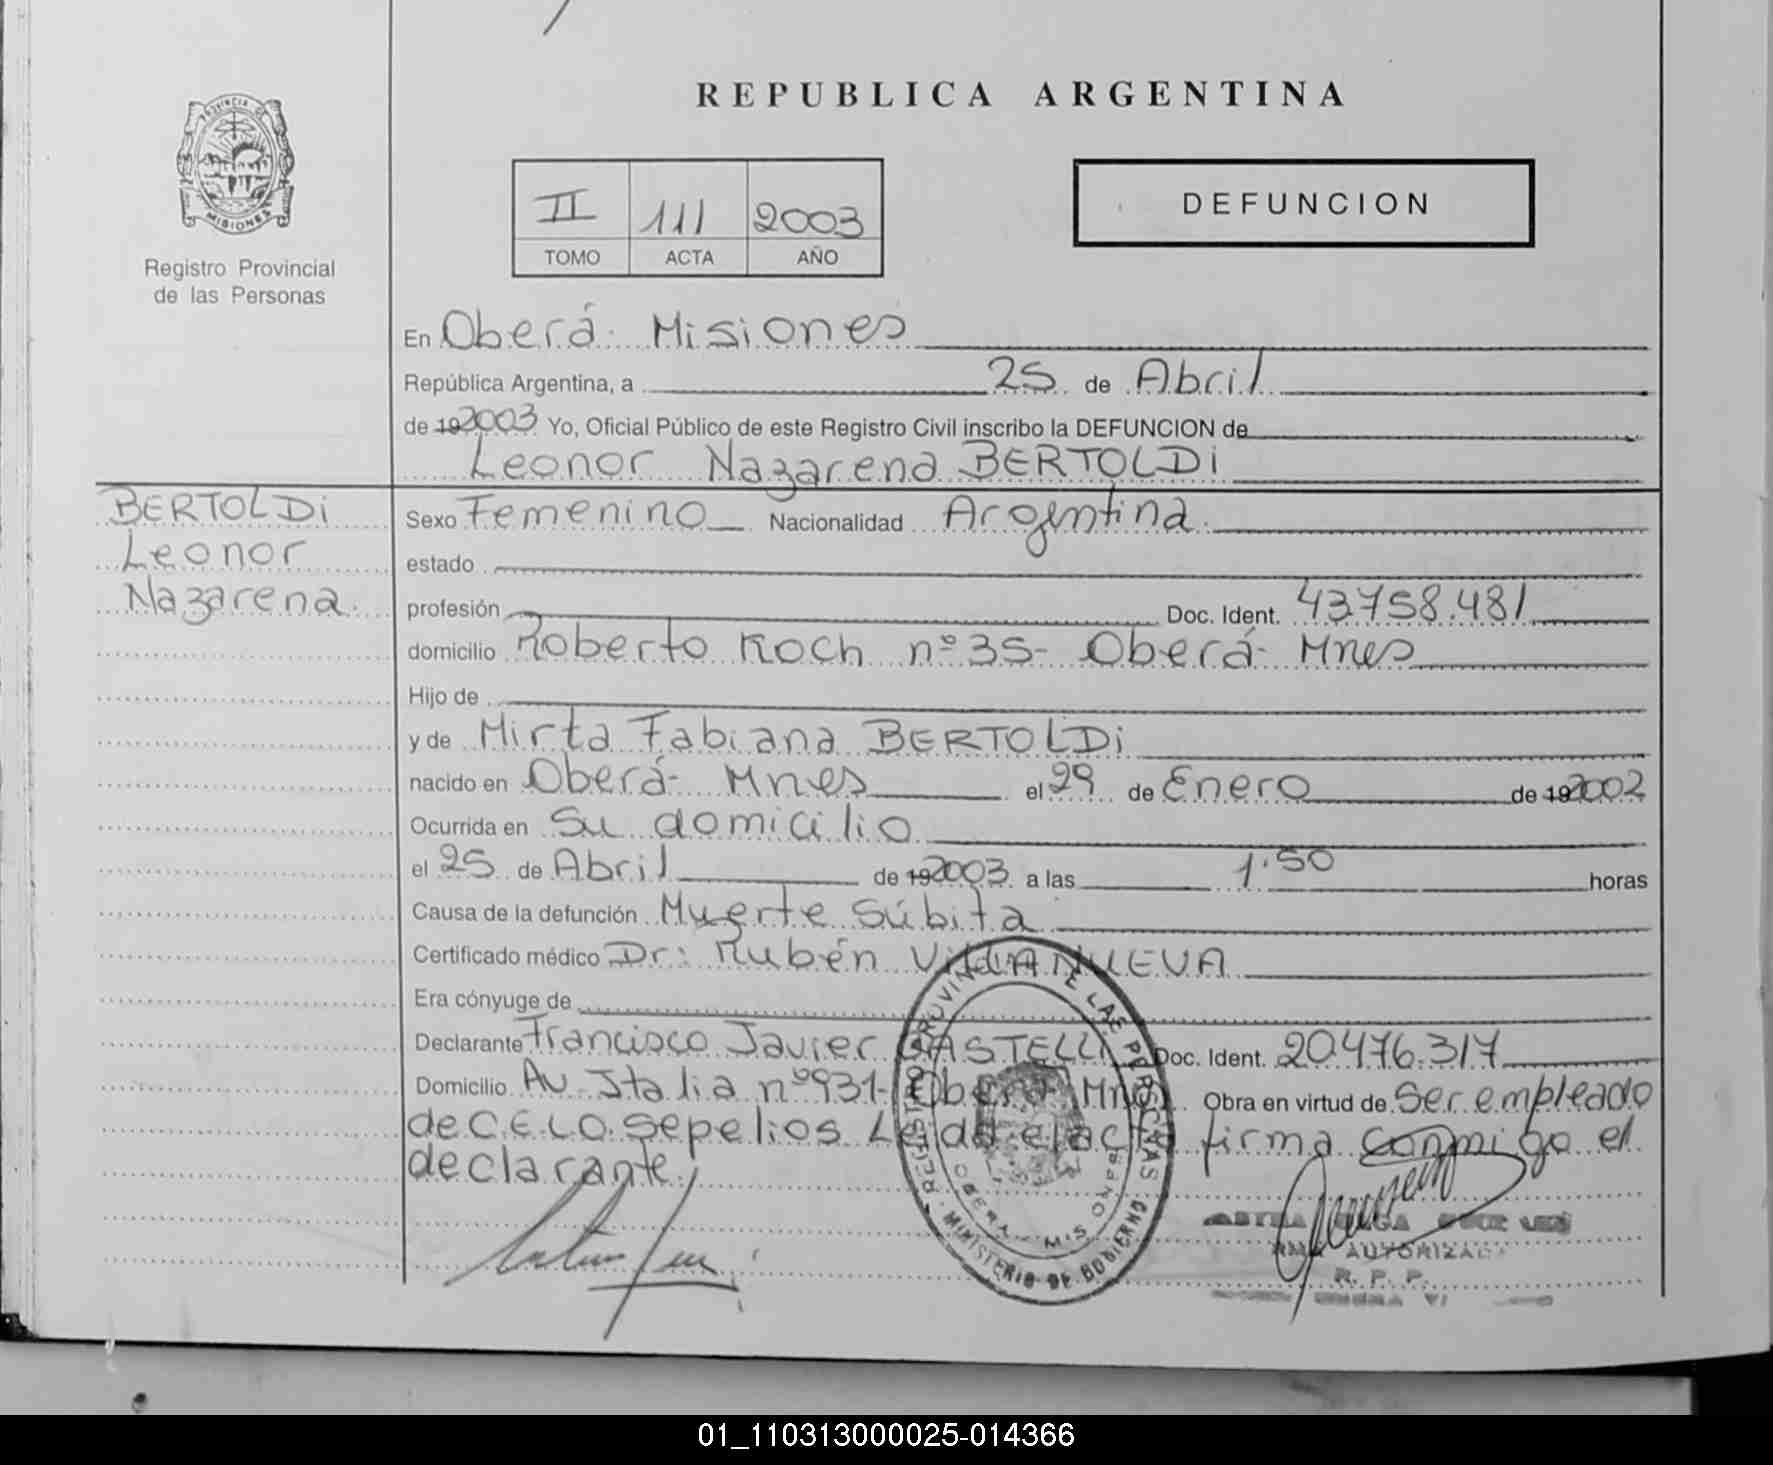 REPUBLICA ARGENTINA
PROVINCIA DE
MISIONES
Registro Provincial
de las Personas
II 111 2003
TOMO ACTA AÑO
DEFUNCION
En Oberá- Misiones
República Argentina, a 25 de Abril
de 19 2003 Yo, Oficial Público de este Registro Civil inscribo la DEFUNCION de
Leonor Nazarena BERTOLDi
BERTOLDi
Leonor
Nazarena
Sexo Femenino Nacionalidad Argentina
estado
profesión Doc. Ident. 43.758.481
domicilio Roberto Koch nº 35- Oberá- Mnes
Hijo de
y de Mirta Fabiana BERTOLDi
nacido en Oberá- Mnes el 29 de Enero de 19 2002
Ocurrida en su domicilio
el 25 de Abril de 19 2003 a las 1.50 horas
Causa de la defunción Muerte Súbita
Certificado médico Dr: Rubén VILLANUEVA
Era cónyuge de
Declarante Francisco Javier CASTELLI Doc. Ident. 20.476.317
Domicilio Av. Italia nº 931- Oberá Mnes Obra en virtud de Ser empleado
de C.E.L.O. Sepelios Leida el acta firma conmigo el
declarante
REGISTRO PROVINCIAL DE LAS PERSONAS
OBERA - MISIONES
MINISTERIO DE GOBIERNO
AUTORIZADA
R. P. P.
01_110313000025-014366